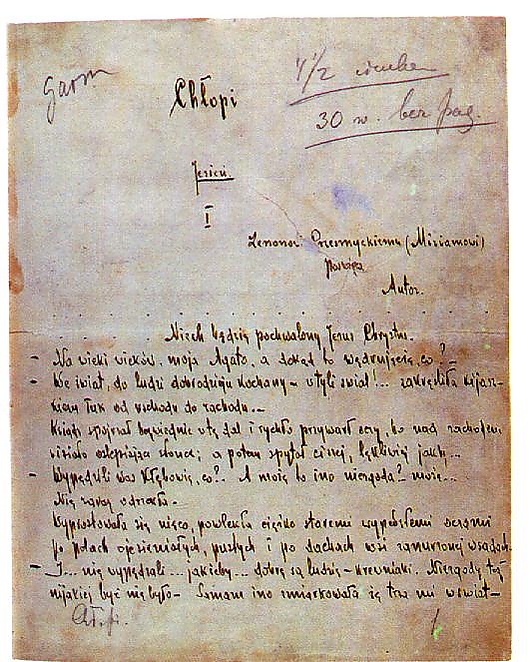 Garm
7 1/2
30 w. bez pag.
Chłopi
Jesień.
I
Zenonowi Przesmyckiemu (Miriamowi)
poświęca
Autor.
Niech będzie pochwalony Jezus Chrystus.
- Na wieki wieków, moja Agato, a dokąd to wędrujecie, co? -
- We świat, do ludzi dobrodzieju kochany - w tyli świat!... zakreśliła kijasz-
kiem łuk od wschodu do zachodu..-
Ksiądz spojrzał bezwiednie w tę dal i rychło przywarł oczy, bo nad zachodem
wisiało oślepiające słońce; a potem spytał ciszej, lękliwiej jakby...
- Wypędzili was Kłębowie, co?.. A może to ino niezgoda?.. może...
Nie zaraz odrzekła. -
Wyprostowała się nieco, powlekła ciężko staremi wypełzłemi oczami
po polach ojesieniałych, pustych i po dachach wsi zanurzonej w sadach.
- I... nie wypędzali... jakżeby... dobre są ludzie - krewniaki. Niezgody też
nijakiej być nie było - Samam ino zmiarkowała że trza mi w świat -